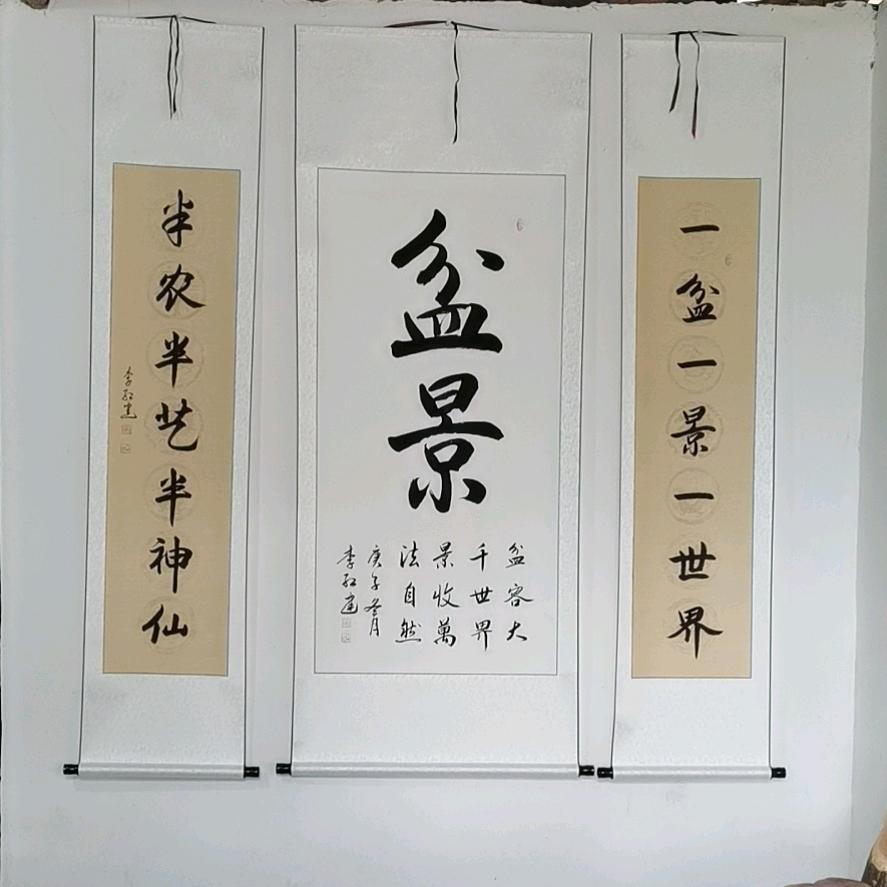 一盆一景一世界
盆景
盆容大
千世界
景收萬
法自然
庚子冬月
李红建
半农半艺半神仙
李红建